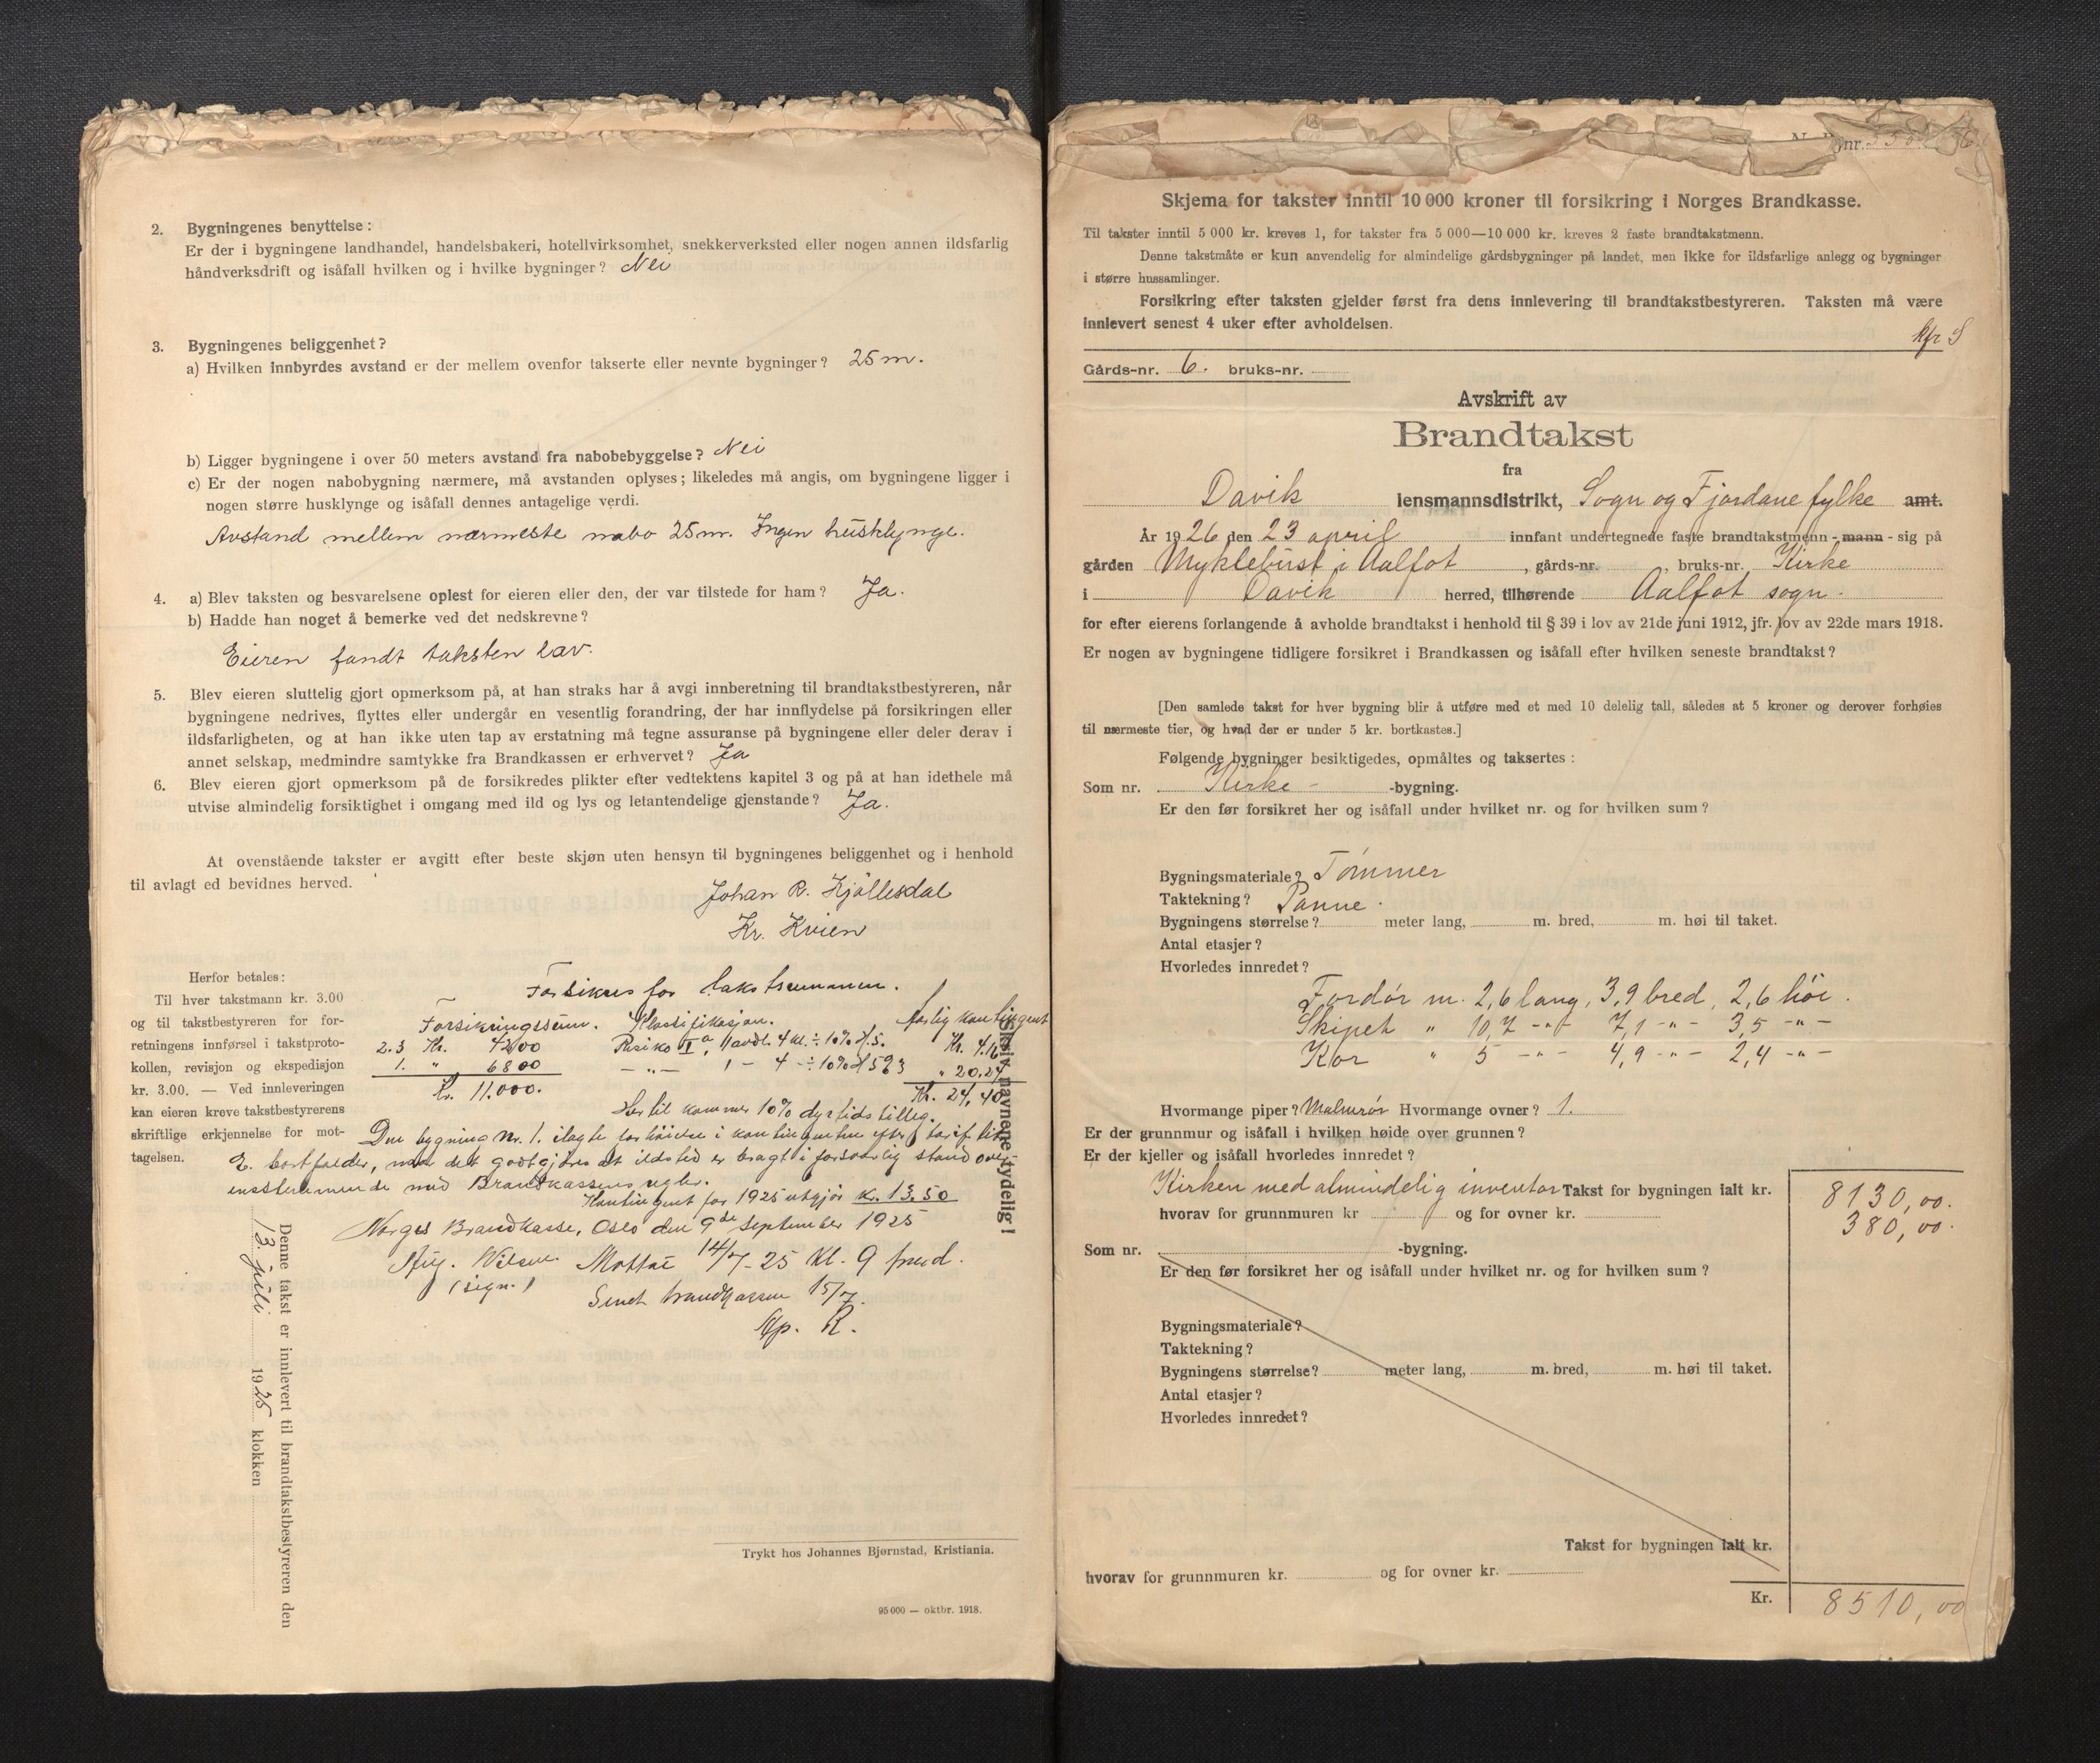 2. Bygningenes benyttelse:
Er der i bygningene landhandel, handelsbakeri, hotellvirksomhet, snekkerverksted eller nogen annen ildsfarlig
håndverksdrift og isåfall hvilken og i hvilke bygninger? Nei
3. Bygningenes beliggenhet?
a) Hvilken innbyrdes avstand er der mellem ovenfor takserte eller nevnte bygninger? 25 m.
b) Ligger bygningene i over 50 meters avstand fra nabobebyggelse? Nei
c) Er der nogen nabobygning nærmere, må avstanden oplyses; likeledes må angis, om bygningene ligger i
nogen større husklynge og isåfall dennes antagelige verdi.
Avstand mellem nærmeste nabo 25 m. Ingen husklynge.
4. a) Blev taksten og besvarelsene oplest for eieren eller den, der var tilstede for ham? Ja.
b) Hadde han noget å bemerke ved det nedskrevne?
Eieren fandt taksten lav.
5. Blev eieren sluttelig gjort opmerksom på, at han straks har å avgi innberetning til brandtakstbestyreren, når
bygningene nedrives, flyttes eller undergår en vesentlig forandring, der har innflydelse på forsikringen eller
ildsfarligheten, og at han ikke uten tap av erstatning må tegne assuranse på bygningene eller deler derav i
annet selskap, medmindre samtykke fra Brandkassen er erhvervet? Ja
6. Blev eieren gjort opmerksom på de forsikredes plikter efter vedtektens kapitel 3 og på at han idethele må
utvise almindelig forsiktighet i omgang med ild og lys og letantendelige gjenstande? Ja.
At ovenstående takster er avgitt efter beste skjøn uten hensyn til bygningenes beliggenhet og i henhold
til avlagt ed bevidnes herved.
Johan R. Kjøllesdal
Kr. Kvien
Herfor betales:
Til hver takstmann kr. 3.00
og til takstbestyreren for for-
retningens innførsel i takstproto-
kollen, revisjon og ekspedisjon
kr. 3.00. — Ved innleveringen
kan eieren kreve takstbestyrerens
skriftlige erkjennelse for mot-
tagelsen.
Forsikres for takstsummen.
Forsikringssum. Klassifikasjon. årlig kontingent
2.3 Kr. 4200 Risiko I a, 1 avdl. 4 kl. ÷ 10% Kr. 4.16
1. " 6800 — " — 1 — 4 — ÷ 10% " 20.24
Kr. 11.000. Kr. 24,40
Hertil kommer 10% dyrtidstillæg.
Den bygning Nr. 1. ilagte forhøielse i kontingenten efter tarif litr
E. bortfalder, når det godtgjøres at ildsted er bragt i forsvarlig stand over-
ensstemmende med Brandkassens regler.
Kontingent for 1925 utgjør kr. 13.50
Norges Brandkasse, Oslo den 9de september 1925
Stig. Nilsen
(sign.)
Mottat 14/7-25 kl. 9 fmd.
Sendt brandkassen 15/7.
Skriv navnene tydelig!
Denne takst er innlevert til brandtakstbestyreren den
13. juli 1925 klokken
Trykt hos Johannes Bjørnstad, Kristiania.
95 000 — oktbr. 1918.
Skjema for takster inntil 10 000 kroner til forsikring i Norges Brandkasse.
Til takster inntil 5 000 kr. kreves 1, for takster fra 5 000—10 000 kr. kreves 2 faste brandtakstmenn.
Denne takstmåte er kun anvendelig for almindelige gårdsbygninger på landet, men ikke for ildsfarlige anlegg og bygninger
i større hussamlinger.
Forsikring efter taksten gjelder først fra dens innlevering til brandtakstbestyreren. Taksten må være
innlevert senest 4 uker efter avholdelsen.
Gårds-nr. 6. bruks-nr.
Avskrift av
Brandtakst
fra
Davik lensmannsdistrikt, Sogn og Fjordane fylke amt.
År 1926 den 23 april innfant undertegnede faste brandtakstmenn - mann - sig på
gården Myklebust i Aalfot, gårds-nr. , bruks-nr. Kirke
i Davik herred, tilhørende Aalfot sogn.
for efter eierens forlangende å avholde brandtakst i henhold til § 39 i lov av 21de juni 1912, jfr. lov av 22de mars 1918.
Er nogen av bygningene tidligere forsikret i Brandkassen og isåfall efter hvilken seneste brandtakst?
[Den samlede takst for hver bygning blir å utføre med et med 10 delelig tall, således at 5 kroner og derover forhøies
til nærmeste tier, og hvad der er under 5 kr. bortkastes.]
Følgende bygninger besiktigedes, opmåltes og taksertes:
Som nr. Kirke - -bygning.
Er den før forsikret her og isåfall under hvilket nr. og for hvilken sum?
Bygningsmateriale? Tømmer
Taktekning? Panne.
Bygningens størrelse? meter lang, m. bred, m. høi til taket.
Antal etasjer?
Hvorledes innredet?
Fordør m. 2,6 lang, 3,9 bred, 2,6 høi.
Skipet " 10,7 -"- 7,1 -"- 3,5 -"-
Kor " 5 -"- 4,9 -"- 2,4 -"-
Hvormange piper? Malmrør Hvormange ovner? 1.
Er der grunnmur og isåfall i hvilken høide over grunnen?
Er der kjeller og isåfall hvorledes innredet?
Kirken med almindelig inventar Takst for bygningen ialt kr. 8130,00.
hvorav for grunnmuren kr og for ovner kr. 380,00.
Som nr. -bygning.
Er den før forsikret her og isåfall under hvilket nr. og for hvilken sum?
Bygningsmateriale?
Taktekning?
Bygningens størrelse? meter lang, m. bred, m. høi til taket.
Antal etasjer?
Hvorledes innredet?
Takst for bygningen ialt kr.
hvorav for grunnmuren kr. og for ovner kr.
Kr. 8510,00